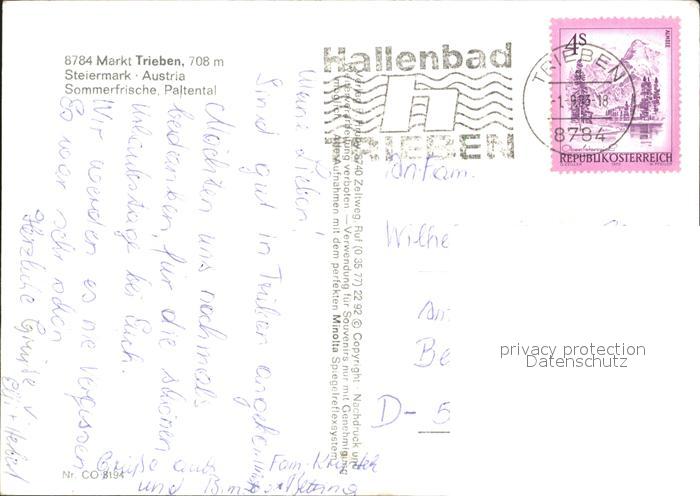 8784 Markt Trieben, 708 m
Steiermark · Austria
Sommerfrische, Paltental
Hallenbad
h
TRIEBEN
TRIEBEN
-1.-9.
-18
8784
4S
ALMSEE
REPUBLIK ÖSTERREICH
Meine Lieben!
Sind gut in Trieben angekommen
Möchten uns nochmals
bedanken, für die schönen
Urlaubstage bei Euch.
Wir werden es nie vergessen
Es war sehr schön
Herzliche Grüße v.
Grüße auch Fam.
und
Verlag
8740 Zeltweg, Ruf (0 35 77) 22 92 © Copyright · Nachdruck und
verboten — Verwendung für Souvenirs nur mit Genehmigung
Aufnahmen mit dem perfekten Minolta Spiegelreflexsystem
An Fam.
Wilhe
An
Be
D- 5
privacy protection
Datenschutz
Nr. CO 8194